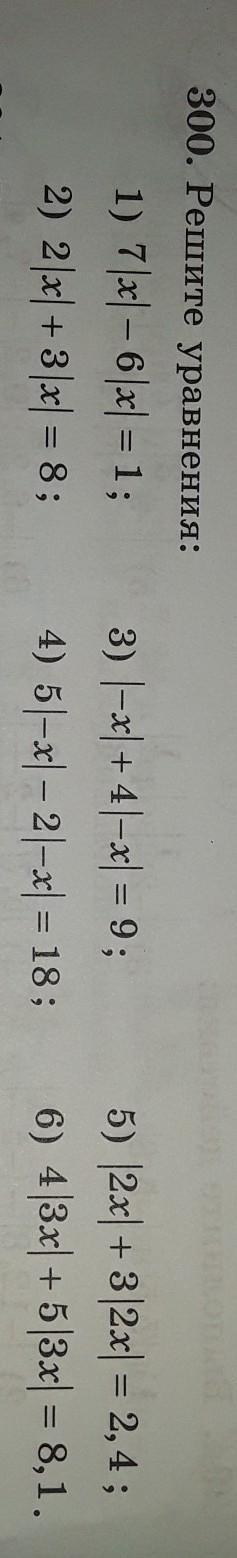 300. Решите уравнения:
1) 7|x| − 6|x| = 1; 3) |−x| + 4|−x| = 9; 5) |2x| + 3|2x| = 2,4;
2) 2|x| + 3|x| = 8; 4) 5|−x| − 2|−x| = 18; 6) 4|3x| + 5|3x| = 8,1.